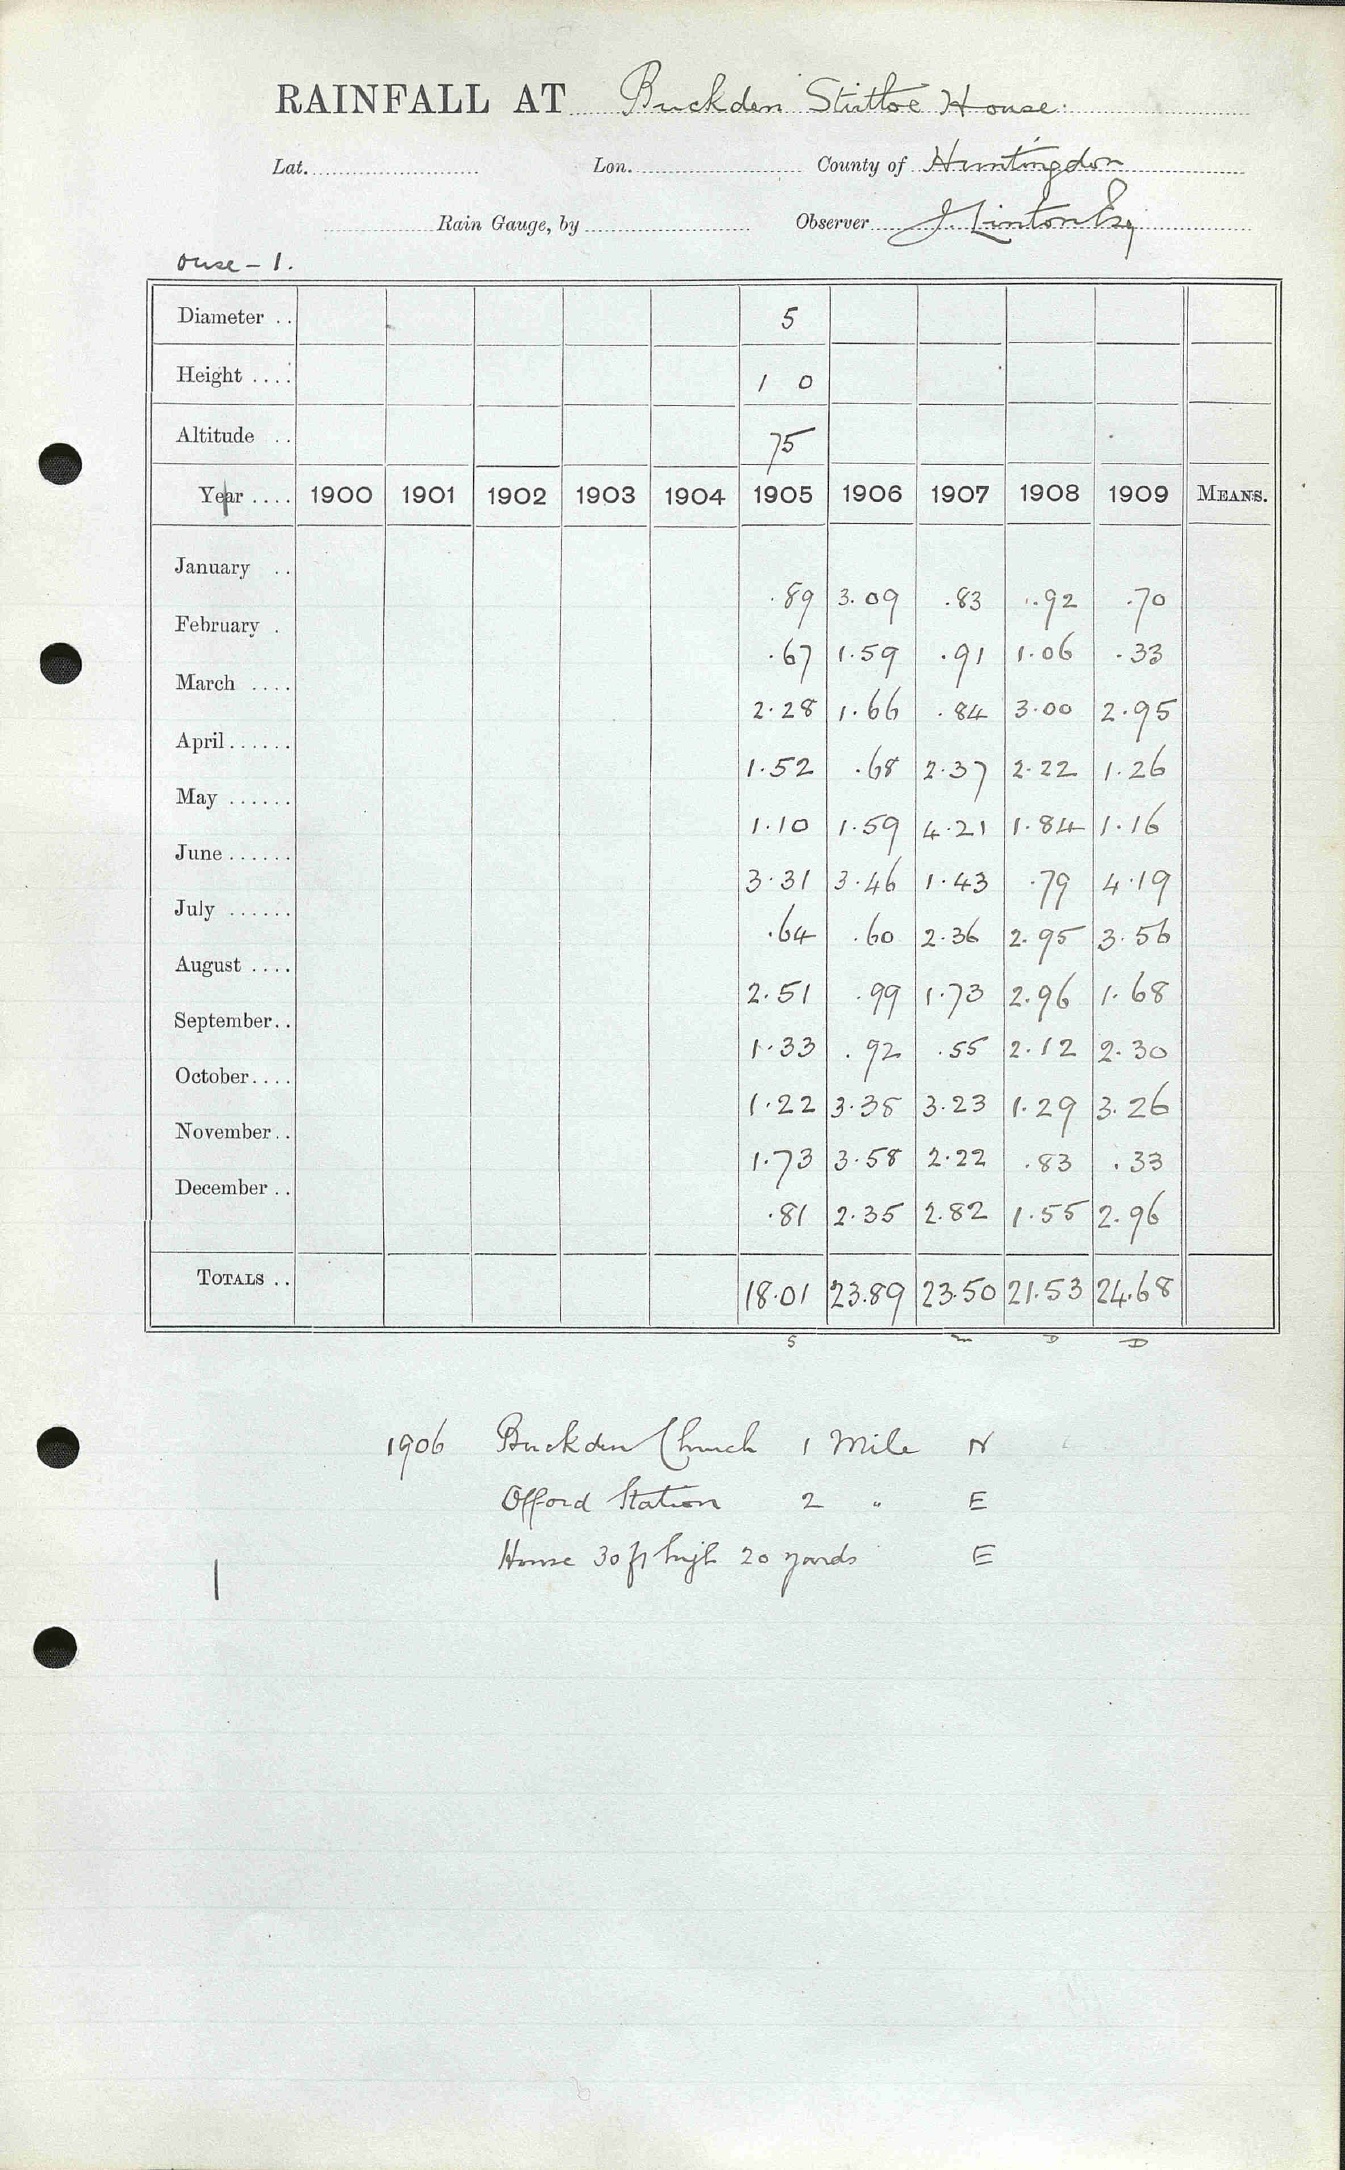 RAINFALL AT Buckden Stirtloe House.
Lat. Lon. County of Huntingdon
Rain Gauge, by Observer J. Linton Esq
Ouse - 1.
Diameter .. 5
Height .... 1 0
Altitude .. 75
Year .... 1900 1901 1902 1903 1904 1905 1906 1907 1908 1909 MEANS.
January .. .89 3.09 .83 .92 .70
February . .67 1.59 .91 1.06 .33
March .... 2.28 1.66 .84 3.00 2.95
April ...... 1.52 .68 2.37 2.22 1.26
May ...... 1.10 1.59 4.21 1.84 1.16
June ...... 3.31 3.46 1.43 .79 4.19
July ...... .64 .60 2.36 2.95 3.56
August .... 2.51 .99 1.73 2.96 1.68
September.. 1.33 .92 .55 2.12 2.30
October.... 1.22 3.38 3.23 1.29 3.26
November.. 1.73 3.58 2.22 .83 .33
December .. .81 2.35 2.82 1.55 2.96
TOTALS .. 18.01 23.89 23.50 21.53 24.68
S m D D
1906 Buckden Church 1 Mile N
Offord Station 2 " E
House 30 ft high 20 yards E